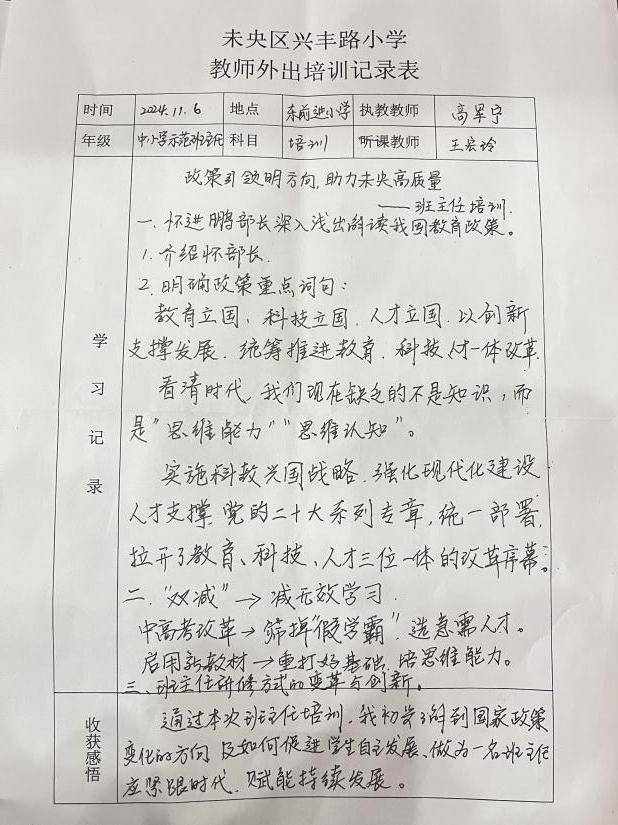 未央区兴丰路小学
教师外出培训记录表
时间 2024.11.6 地点 东前进小学 执教教师 高军宁
年级 中小学示范班主任 科目 培训 听课教师 王宏玲
政策引领明方向,助力未央高质量
——班主任培训.
一、怀进鹏部长深入浅出解读我国教育政策。
1.介绍怀部长.
2.明确政策重点词句:
教育立国、科技立国.人才立国.以创新
支撑发展.统筹推进教育.科技人才一体改革.
看清时代,我们现在缺乏的不是知识,而
是"思维能力""思维认知"。
实施科教兴国战略.强化现代化建设
人才支撑.党的二十大系列专章,统一部署,
拉开了教育、科技、人才三位一体的改革序幕。
二."双减"→减无效学习.
中高考改革→筛掉"假学霸".选急需人才。
启用新教材→重打好基础.培思维能力。
三、班主任研修方式的变革与创新。
学习记录
通过本次班主任培训.我初步了解到国家政策
变化的方向及如何促进学生自主发展、做为一名班主任
应紧跟时代.赋能持续发展。
收获感悟